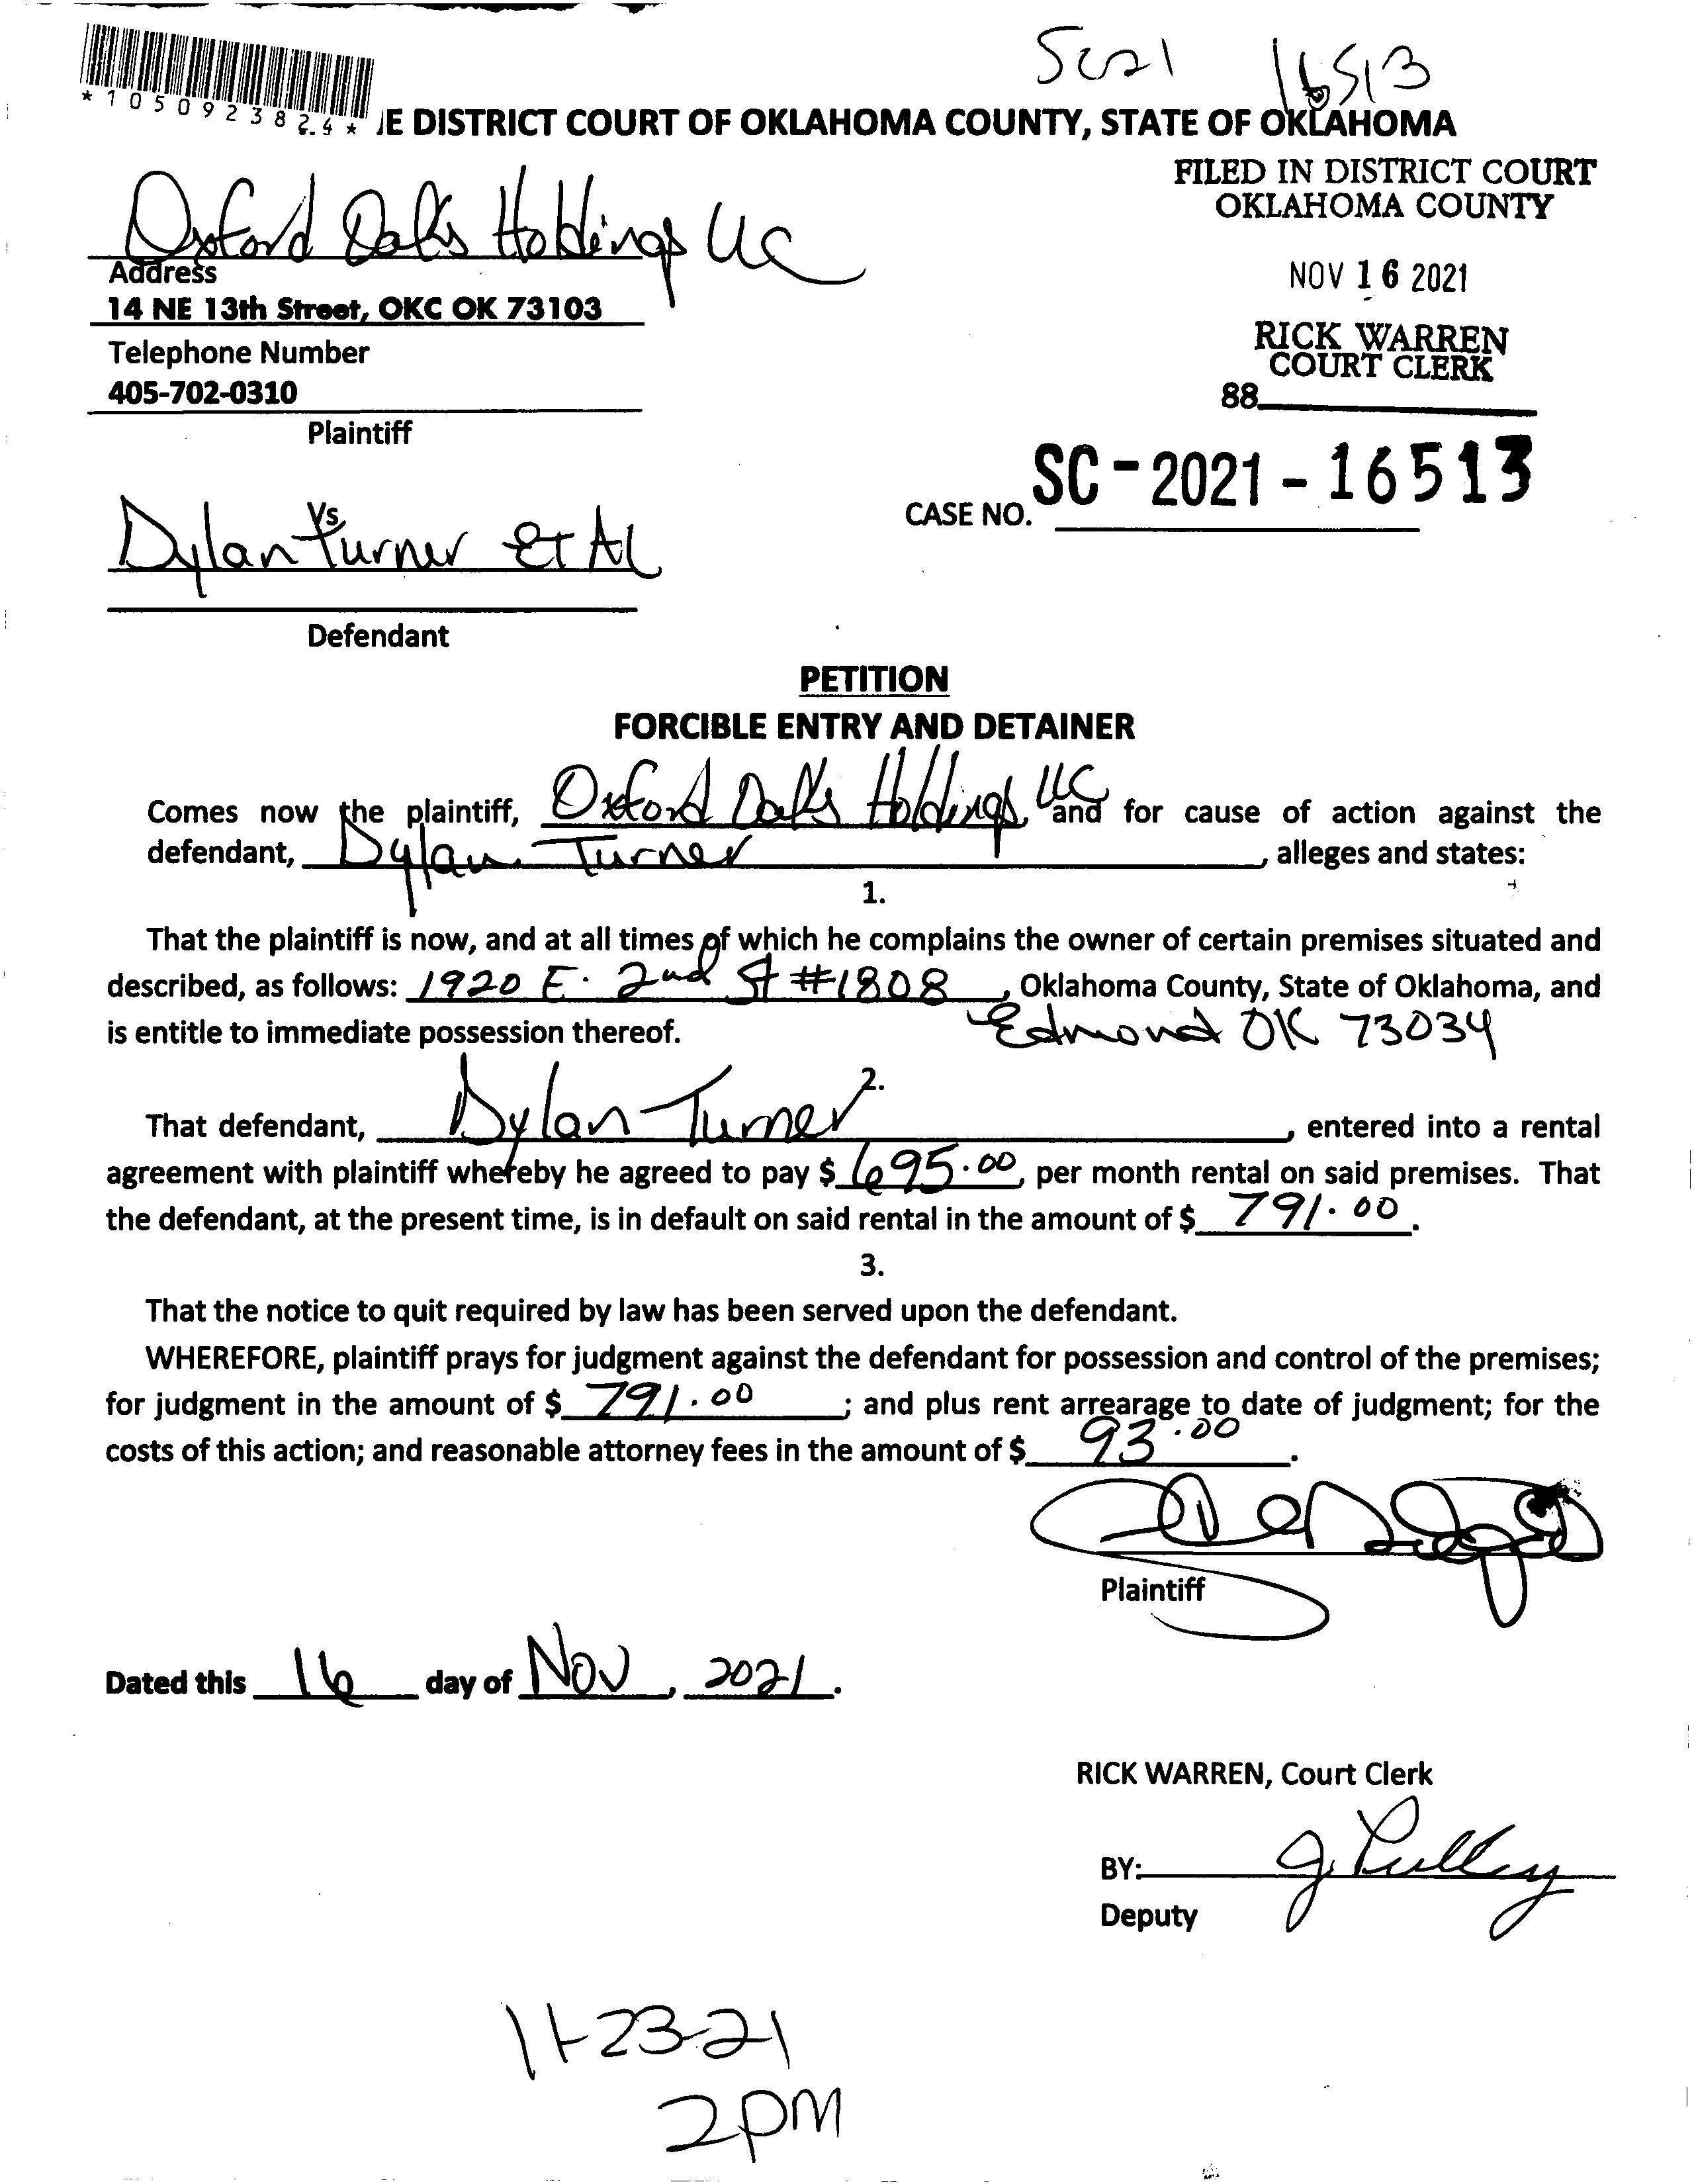 Sc21 16513
*1050923824* IE DISTRICT COURT OF OKLAHOMA COUNTY, STATE OF OKLAHOMA
FILED IN DISTRICT COURT
OKLAHOMA COUNTY
Oxford Oaks Holdings LLC
Address
NOV 16 2021
14 NE 13th Street, OKC OK 73103
RICK WARREN
COURT CLERK
Telephone Number
405-702-0310
88
Plaintiff
CASE NO. SC-2021-16513
Vs.
Dylan Turner Et Al
Defendant
PETITION
FORCIBLE ENTRY AND DETAINER
Comes now the plaintiff, Oxford Oaks Holdings, LLC and for cause of action against the
defendant, Dylan Turner, alleges and states:
1.
That the plaintiff is now, and at all times of which he complains the owner of certain premises situated and
described, as follows: 1920 E. 2nd St #1808, Oklahoma County, State of Oklahoma, and
is entitle to immediate possession thereof. Edmond OK 73034
2.
That defendant, Dylan Turner, entered into a rental
agreement with plaintiff whereby he agreed to pay $ 695.00, per month rental on said premises. That
the defendant, at the present time, is in default on said rental in the amount of $ 791.00.
3.
That the notice to quit required by law has been served upon the defendant.
WHEREFORE, plaintiff prays for judgment against the defendant for possession and control of the premises;
for judgment in the amount of $ 791.00; and plus rent arrearage to date of judgment; for the
costs of this action; and reasonable attorney fees in the amount of $ 93.00.
Plaintiff
Dated this 16 day of Nov, 2021.
RICK WARREN, Court Clerk
BY:
Deputy
11-23-21
2PM